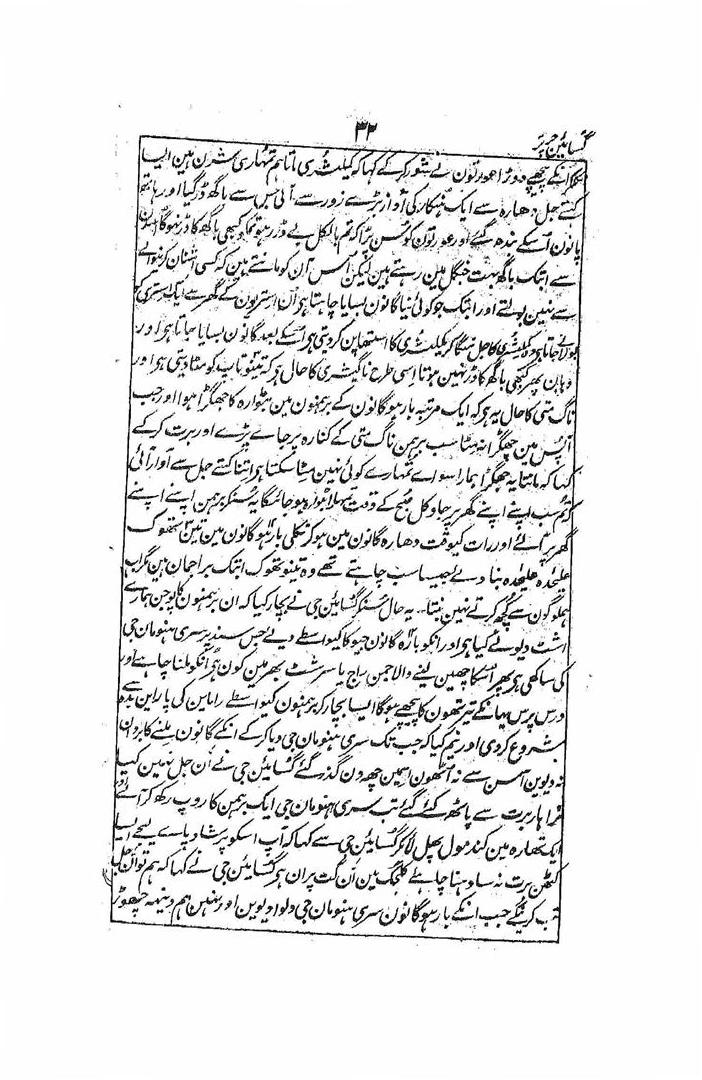 ۳۲
گسائین چرتر
انکے پیچھے دوڑا عورتون نے شور کرکے کہا کہ کیلیشری ماتا ہم تمہاری شرن ہین ایسا
کہتے جل دھارہ سے ایک ہنکار کی آواز بڑے زور سے آئی جس سے باگھ ڈر گیا اور ہاتھ
پانون اسکے بندھ گئے اور عورتون کو سُن پڑا کہ تم بالکل بے ڈر رہو تمکو کبھی باگھ کا ڈر نہوگا
سے ابتک باگھ بہت جنگل مین رہتے ہین لیکن اُس آن کو مانتے ہین کہ کسی اشنان کرنیوالے
سے نہین بولتے اور ابتک جو کوئی نیا گانون بسایا چاہتا ہی اُن استریون کے گھر سے ایک استری کو
بولا جاتا ہی وہ کیلیشری کا جل منگا کر کیلیشری کا استھاپن کر دیتی ہی اسکے بعد گانون بسایا جاتا ہی اور
وہان پھر کبھی باگھ کا ڈر نہین ہوتا اِسی طرح ناگیشری کا حال ہی کہ تینو تاپ کو مٹا دیتی ہی اور
ناگ متی کا حال یہ ہی کہ ایک مرتبہ بارہو گانون کے برہمنون مین بٹوارہ کا جھگڑا ہوا اور جب
آپس مین جھگڑا نہ مٹا سب برہمن ناگ متی کے کنارہ پر جاے پڑے اور برت کرکے
کہا کہ ماتا یہ جھگڑا ہمارا سواے تمہارے کوئی نہین مٹا سکتا ہی اتنا کہتے جل سے آواز آئی
کہ تم سب اپنے اپنے گھر پر جاو کل صبح کے وقت تمہارا بٹوارہ ہو جائیگا یہ سُنکر برہمن اپنے اپنے
گھر پر آئے اور رات کیوقت دھارہ گانون مین ہوکر نکلی بارہو گانون مین تین تھوک
علیحدہ علیحدہ بنا دیے جیسا سب چاہتے تھے وہ تینو تھوک ابتک براجمان ہین
ہملوگون سے کچھ کرتے نہین بنتا۔ یہ حال سُنکر گسائین جی نے بچار کیا کہ ان برہمنون کا پوجن ہمارے
اشٹ دیو نے کیا ہی اور انکو بارہ گانون جیوکا کیواسطے دیے جس سند پر سری ہنومان جی
کی ساکھی ہی پھر اسکا چھین لینے والا جمن راج یا سرشٹ بھر مین کون ہی انکو ملنا چاہئے اور
درس پرس یہانکے تیرتھون کا پیچھے ہوگا ایسا بچار کر برہمنون کیواسطے راماین کی پاراین
شروع کر دی اور نیم کیا کہ جب تک سری ہنومان جی دیا کرکے انکے گانون ملنے کا بردان
نہ دیوین آسن سے نہ اٹھون اسمین چھہ دن گذر گئے گسائین جی نے اُن جل نہین کیا
نراہار برت سے پاٹھ کئے گئے تب سری ہنومان جی ایک برہمن کا روپ رکھ کر آئے اور
ایک تھارہ مین کند مول پھل لاکر گسائین جی سے کہا کہ آپ اسکو پرشاد پاے لیجے ایسا
کٹھن برت نہ سادھنا چاہئے کلجگ مین اُن گت پران ہی گسائین جی نے کہا کہ ہم تو اُن جل
تب کرینگے جب انکے بارہو گانون سری ہنومان جی دلوا دیوین اور نہین ہم ونیہہ چھوڑ